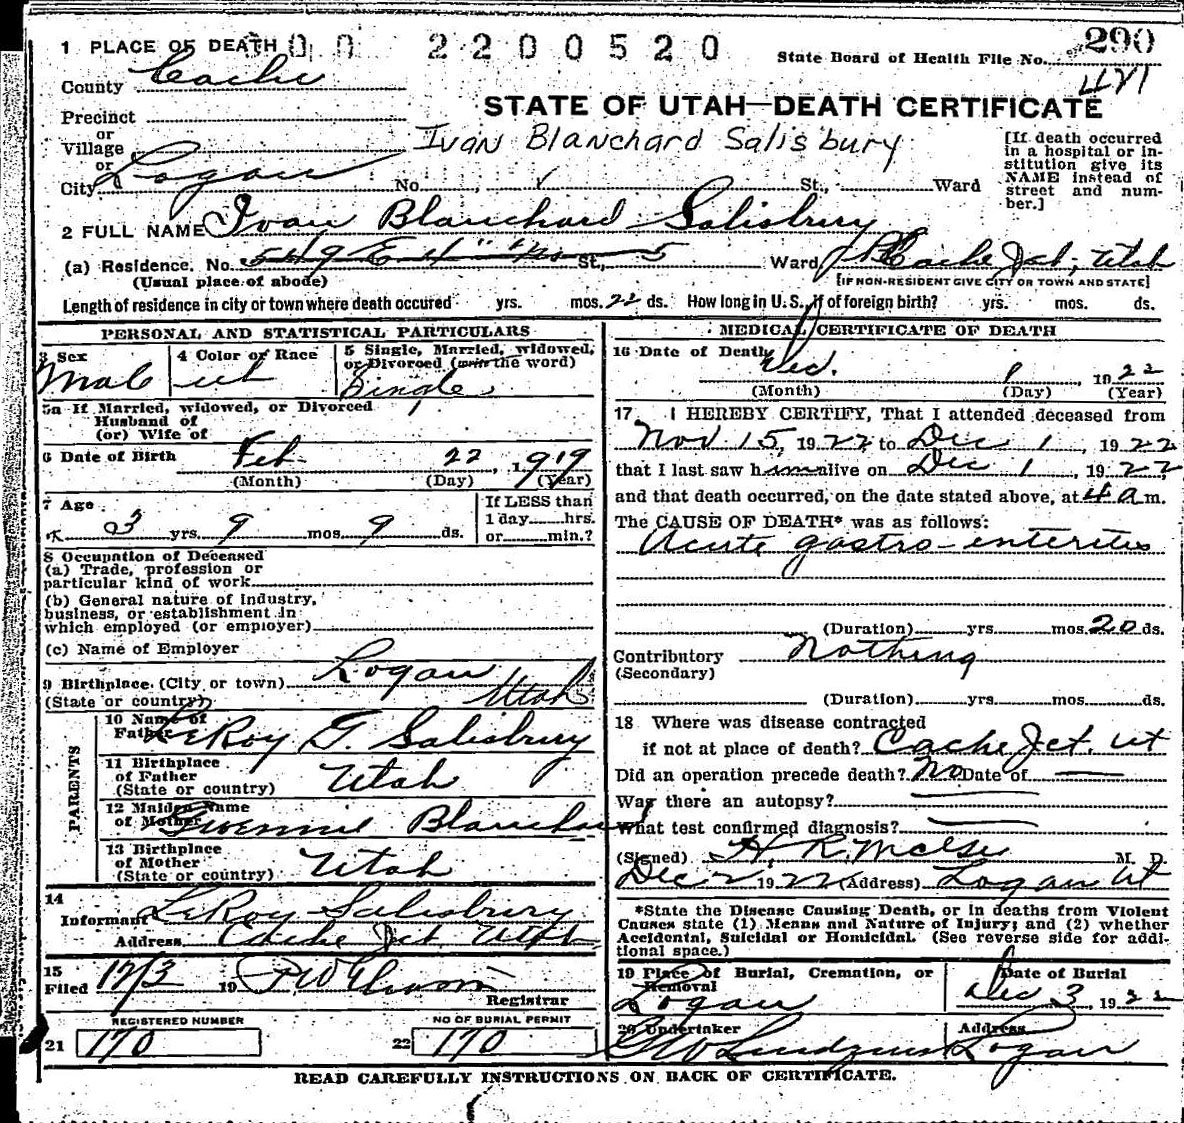 1 PLACE OF DEATH 00 2200520 State Board of Health File No. 290
County Cache 421
STATE OF UTAH—DEATH CERTIFICATE
Precinct
or
Village
Ivan Blanchard Salisbury
[If death occurred in a hospital or in-
stitution give its
NAME instead of
street and num-
ber.]
or
City Logan No. St., Ward
2 FULL NAME Ivan Blanchard Salisbury
(a) Residence. No. 549 E 4" No St., 5 Ward Cache Jct, Utah
(Usual place of abode) [IF NON-RESIDENT GIVE CITY OR TOWN AND STATE]
Length of residence in city or town where death occured yrs. mos. 22 ds. How long in U. S., if of foreign birth? yrs. mos. ds.
PERSONAL AND STATISTICAL PARTICULARS
3 Sex Male
4 Color or Race
5 Single, Married, widowed,
or Divorced (write the word)
Single
5a If Married, widowed, or Divorced
Husband of
(or) Wife of
6 Date of Birth Feb 22, 1919
(Month) (Day) (Year)
7 Age 3 yrs. 9 mos. 9 ds.
If LESS than
1 day hrs.
or min.?
8 Occupation of Deceased
(a) Trade, profession or
particular kind of work
(b) General nature of industry,
business, or establishment in
which employed (or employer)
(c) Name of Employer
9 Birthplace (City or town) Logan
(State or country) Utah
PARENTS
10 Name of
Father LeRoy G. Salisbury
11 Birthplace
of Father
(State or country) Utah
12 Maiden Name
of Mother Blanchard
13 Birthplace
of Mother
(State or country) Utah
14
Informant LeRoy Salisbury
Address Cache Jct Utah
15
Filed 12/3 19
Registrar
REGISTERED NUMBER
21 170
NO OF BURIAL PERMIT
22 170
MEDICAL CERTIFICATE OF DEATH
16 Date of Death Dec. 1, 1922
(Month) (Day) (Year)
17 I HEREBY CERTIFY, That I attended deceased from
Nov 15, 1922 to Dec 1, 1922
that I last saw him alive on Dec 1, 1922,
and that death occurred, on the date stated above, at 4 a m.
The CAUSE OF DEATH* was as follows:
Acute gastro-enteritis
(Duration) yrs mos. 20 ds.
Contributory Nothing
(Secondary)
(Duration) yrs. mos. ds.
18 Where was disease contracted
if not at place of death? Cache Jct. Ut
Did an operation precede death? No Date of —
Was there an autopsy?
What test confirmed diagnosis?
(Signed) H. R. M. D.
Dec 2 1922 (Address) Logan Ut
*State the Disease Causing Death, or in deaths from Violent
Causes state (1) Means and Nature of Injury; and (2) whether
Accidental, Suicidal or Homicidal. (See reverse side for addi-
tional space.)
19 Place of Burial, Cremation, or
Removal
Logan
Date of Burial
Dec 3, 1922
20 Undertaker
Address
Logan
READ CAREFULLY INSTRUCTIONS ON BACK OF CERTIFICATE.